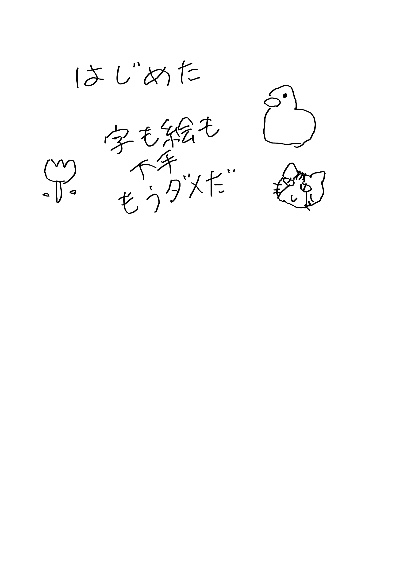 はじめた
字も絵も
下手
もうダメだ